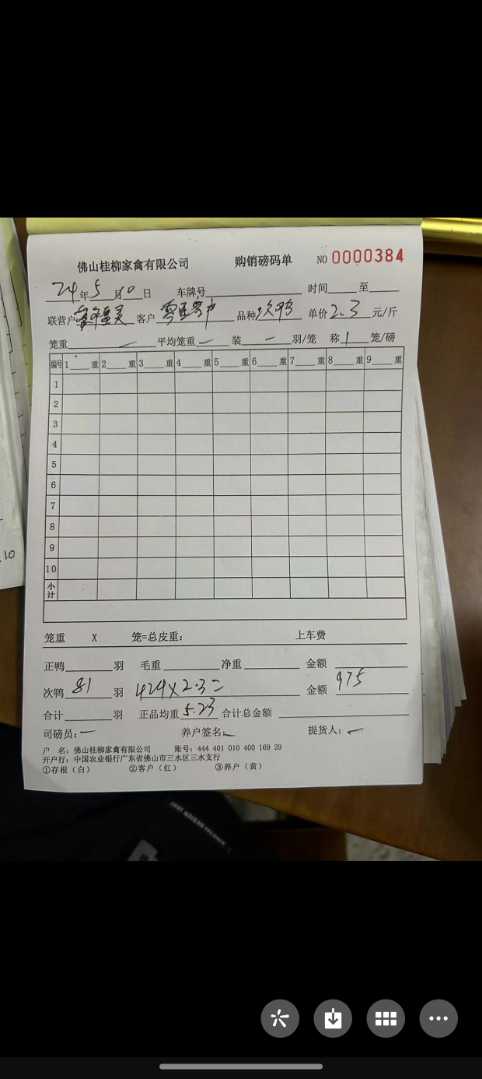 佛山桂柳家禽有限公司 购销磅码单 NO 0000384
24年5月10日 车牌号 时间 至
联营户 客户 品种 次鸭 单价2.3元/斤
笼重 — 平均笼重 — 装 — 羽/笼 称 1 笼/磅
编号 1 重 2 重 3 重 4 重 5 重 6 重 7 重 8 重 9 重
1
2
3
4
5
6
7
8
9
10
小计
笼重 X 笼=总皮重： 上车费
正鸭 羽 毛重 净重 金额
次鸭 81 羽 424×2.3= 金额 975
合计 羽 正品均重 5.23 合计总金额
司磅员：— 养户签名： 提货人：—
户 名：佛山桂柳家禽有限公司 账号：444 401 010 400 169 29
开户行：中国农业银行广东省佛山市三水区三水支行
①存根（白） ②客户（红） ③养户（黄）
.10